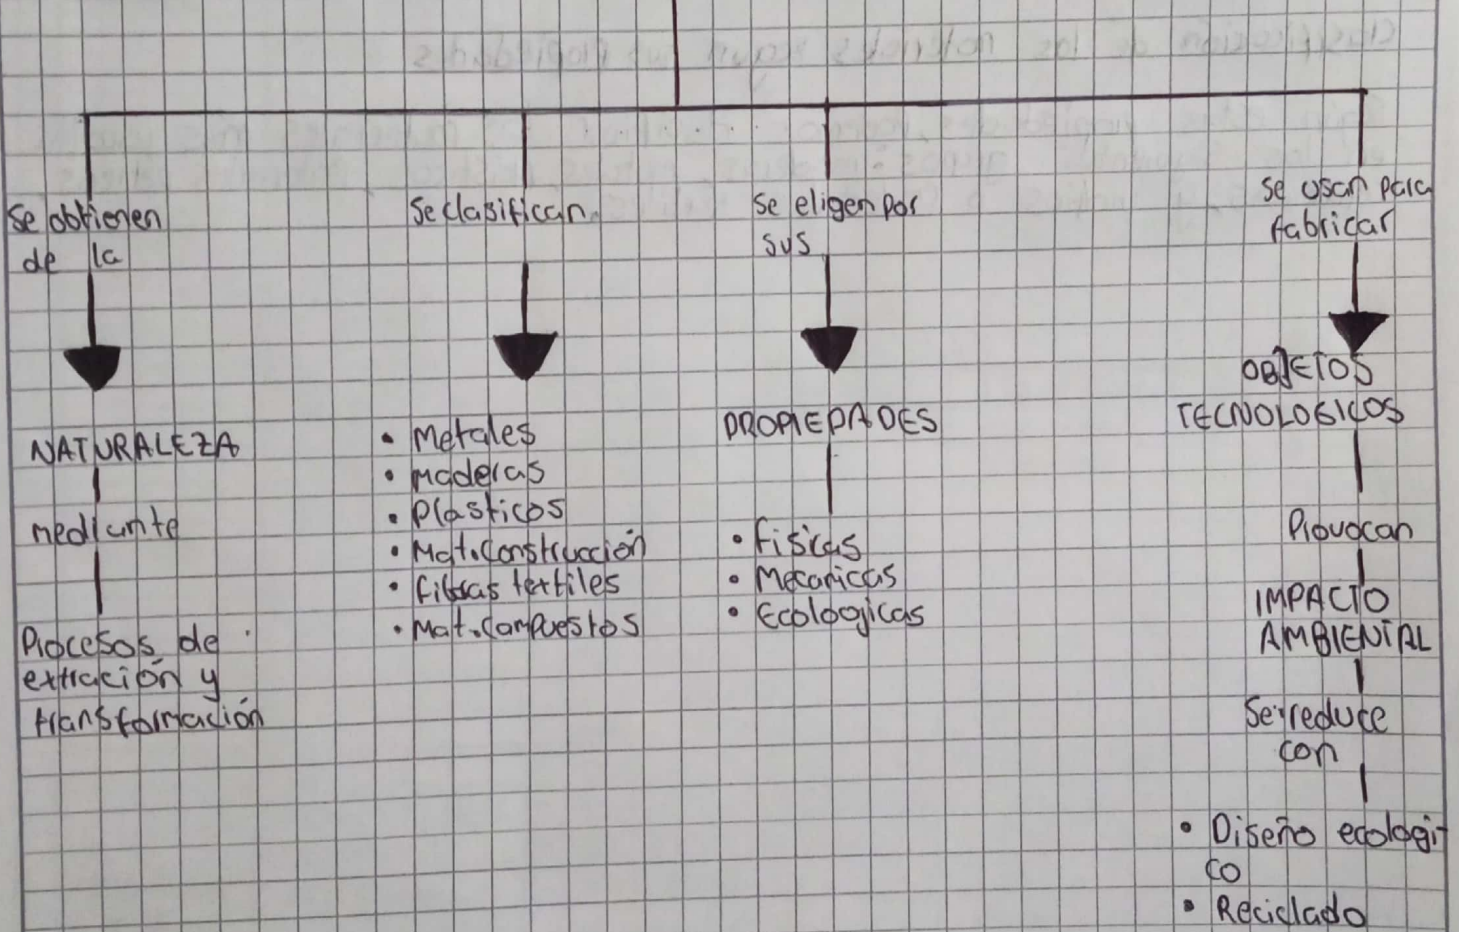 Se obtienen
de la
NATURALEZA
mediante
Procesos de
extración y
transformación
Se clasifican
• Metales
• maderas
• Plasticos
• Mat. Construcción
• Fibras textiles
• Mat. Compuestos
Se eligen por
sus
PROPIEDADES
• Fisicas
• Mecanicas
• Ecologicas
Se usan para
fabricar
OBJETOS
TECNOLOGICOS
Provocan
IMPACTO
AMBIENTAL
Se reduce
con
• Diseño ecologi
co
• Reciclado